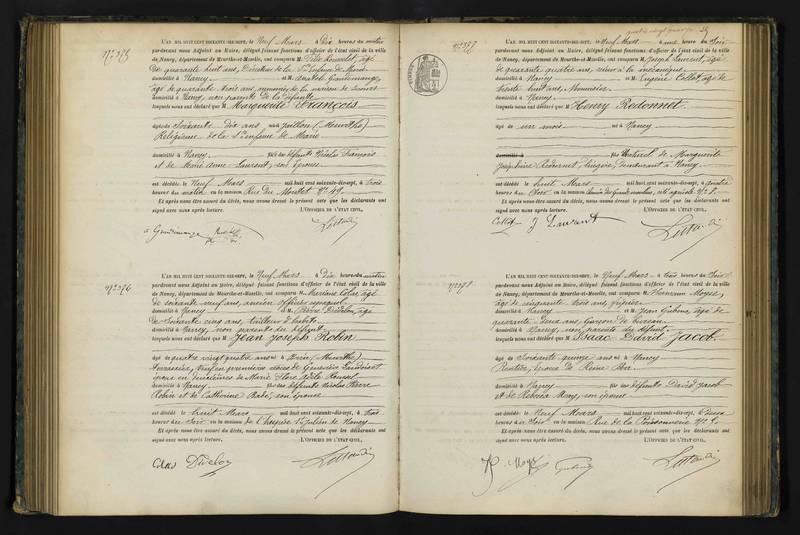 N° 375
L'AN MIL HUIT CENT SOIXANTE-DIX-SEPT, le Neuf Mars à Dix heures du matin
pardevant nous Adjoint au Maire, délégué faisant fonctions d'officier de l'état civil de la ville
de Nancy, département de Meurthe-et-Moselle, ont comparu M. Félix âgé
de quarante huit ans, Directeur de la Ste Enfance de Marie
domicilié à Nancy et M. Anatole Gaudémange,
âgé de quarante trois ans, de la maison de
domicilié à Nancy, non parents de la défunte
lesquels nous ont déclaré que M Marguerite François
âgée de Soixante dix ans née à (Meurthe)
Religieuse de la Ste Enfance de Marie
domiciliée à Nancy fille des défunts Nicolas François
et de Marie Anne Laurent, son épouse
est décédée le Neuf Mars mil huit cent soixante-dix-sept, à trois
heures du matin en la maison Rue du N° 49.
Et après nous être assuré du décès, nous avons dressé le présent acte que les déclarants ont
signé avec nous après lecture. L'OFFICIER DE L'ÉTAT CIVIL,
N° 376
L'AN MIL HUIT CENT SOIXANTE-DIX-SEPT, le Neuf Mars à Dix heures du matin
pardevant nous Adjoint au Maire, délégué faisant fonctions d'officier de l'état civil de la ville
de Nancy, département de Meurthe-et-Moselle, ont comparu M. Colas, âgé
de soixante neuf ans, ancien officier
domicilié à Nancy et M. Pierre Didelon, âgé
de Soixante cinq ans, tailleur d'habits
domicilié à Nancy, non parents du défunt
lesquels nous ont déclaré que M Jean Joseph Robin
âgé de quatre vingt quatre ans né à (Meurthe)
Terrassier, Veuf en premières noces de Geneviève
époux en deuxièmes de Marie
domicilié à Nancy fils des défunts Nicolas Pierre
Robin et de Catherine Babé, son épouse
est décédé le huit Mars mil huit cent soixante-dix-sept, à trois
heures du Soir en la maison de l'hospice St Julien de Nancy
Et après nous être assuré du décès, nous avons dressé le présent acte que les déclarants ont
signé avec nous après lecture. L'OFFICIER DE L'ÉTAT CIVIL,
Colas Didelon
N° 377
L'AN MIL HUIT CENT SOIXANTE-DIX-SEPT, le Neuf Mars à une heure du Soir
pardevant nous Adjoint au Maire, délégué faisant fonctions d'officier de l'état civil de la ville
de Nancy, département de Meurthe-et-Moselle, ont comparu M. Joseph Laurent, âgé
de quarante quatre ans,
domicilié à Nancy et M. Eugène Collot, âgé de
trente huit ans, Menuisier
domicilié à Nancy
lesquels nous ont déclaré que M Henry Redonnet
âgé de un mois né à Nancy
domicilié à fils naturel de Marguerite
Joséphine Redonnet, lingère, demeurant à Nancy
est décédé le huit Mars mil huit cent soixante-dix-sept, à quatre
heures du Soir en la maison N° 8.
Et après nous être assuré du décès, nous avons dressé le présent acte que les déclarants ont
signé avec nous après lecture. L'OFFICIER DE L'ÉTAT CIVIL,
Collot J Laurent
N° 378
L'AN MIL HUIT CENT SOIXANTE-DIX-SEPT, le Neuf Mars à trois heures du Soir
pardevant nous Adjoint au Maire, délégué faisant fonctions d'officier de l'état civil de la ville
de Nancy, département de Meurthe-et-Moselle, ont comparu M. Moyse,
âgé de cinquante trois ans,
domicilié à Nancy et M. Jean âgé de
quarante deux ans, Garçon de bureau
domicilié à Nancy, non parents du défunt
lesquels nous ont déclaré que M Isaac David Jacob
âgé de Soixante quinze ans né à Nancy
Rentier, époux de Reine
domicilié à Nancy fils des défunts David Jacob
et de Rebecca son épouse
est décédé le Neuf Mars mil huit cent soixante-dix-sept, à
heures du Soir en la maison Rue de la Poissonnerie N°
Et après nous être assuré du décès, nous avons dressé le présent acte que les déclarants ont
signé avec nous après lecture. L'OFFICIER DE L'ÉTAT CIVIL,